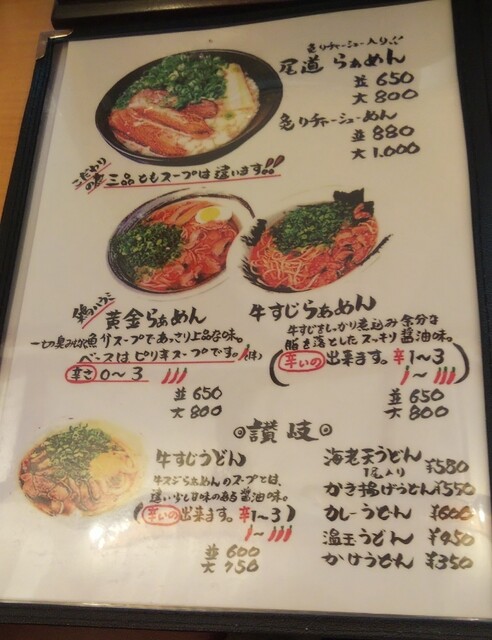 炙りチャーシュー入り!!
尾道らぁめん
並 650
大 800
炙りチャーシューめん
並 880
大 1,000
こだわりの 三品ともスープは違います!!
黄金らぁめん
一切臭みがない魚介スープであっさり上品な味。
ベースはピリ辛スープです。
辛さ 0~3
並 650
大 800
牛すじらぁめん
牛すじをしっかり煮込み余分な
脂を落としたスッキリ醤油味。
(辛いの出来ます。辛1~3)
並 650
大 800
讃岐
牛すじうどん
牛スジらぁめんのスープとは、
違い少し甘味のある醤油味。
(辛いの出来ます。辛1~3)
並 600
大 750
海老天うどん ¥580
1尾入り
かき揚げうどん ¥550
カレーうどん ¥600
温玉うどん ¥450
かけうどん ¥350